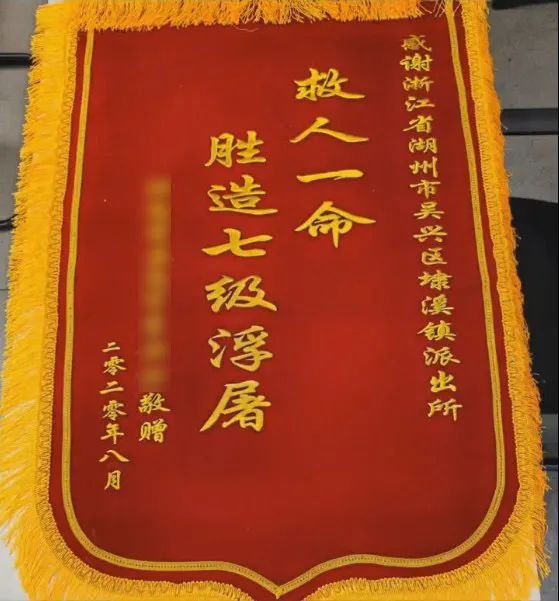 感谢浙江省湖州市吴兴区埭溪镇派出所
救人一命
胜造七级浮屠
敬赠
二零二零年八月